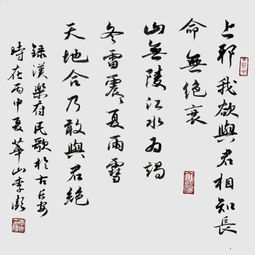 上邪我欲與君相知長
命無絕衰
山無陵江水為竭
冬雷震夏雨雪
天地合乃敢與君絕
錄漢樂府民歌於古長安
時在丙申夏華山李彪